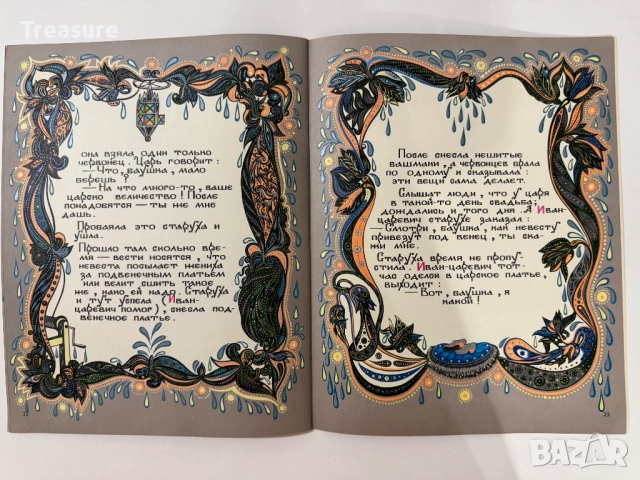 Treasure
она взяла один только
червонец. Царь говорит:
— Что, баушка, мало
берешь?
— На что много-то, ваше
царско величество! После
понадобятся — ты же мне
дашь.
Пробаяла это старуха и
ушла.
Прошло там сколько вре-
мя — вести носятся, что
невеста посылает жениха
за подвенечным платьём
или велит сшить такое
же, како ей надо. Старуха
и тут успела (Иван-
царевич помог), снесла под-
венечное платье.
После снесла нешитые
башмаки, а червонцев брала
по одному и сказывала:
эти вещи сама делает.
Слышат люди, что у царя
в такой-то день свадьба;
дождались и того дня. А Иван-
царевич старухе заказал:
— Смотри, баушка, как невесту
привезут под венец, ты ска-
жи мне.
Старуха время не пропу-
стила. Иван-царевич тот
час оделся в царское платье,
выходит:
— Вот, баушка, я
какой!
23
BAZAR
bg